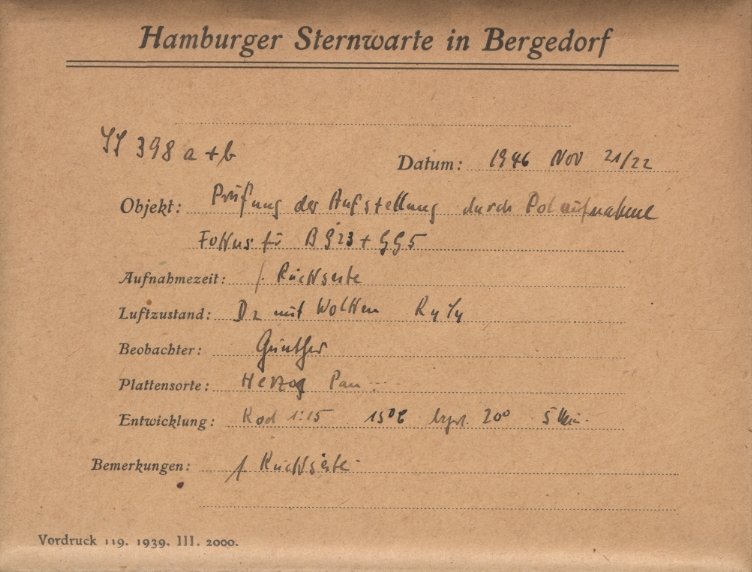 Hamburger Sternwarte in Bergedorf
398 a + b
Datum: 1946 Nov 21/22
Objekt: Prüfung der Aufstellung durch Polaufnahme
Fokus für BG23 + GG5
Aufnahmezeit: Rückseite
Luftzustand: D2 mit Wolken
Beobachter: Günther
Plattensorte: Herzog Pan
Entwicklung: Rod 1:15 20° 5 Min.
Bemerkungen: s. Rückseite
Vordruck 119. 1939. III. 2000.